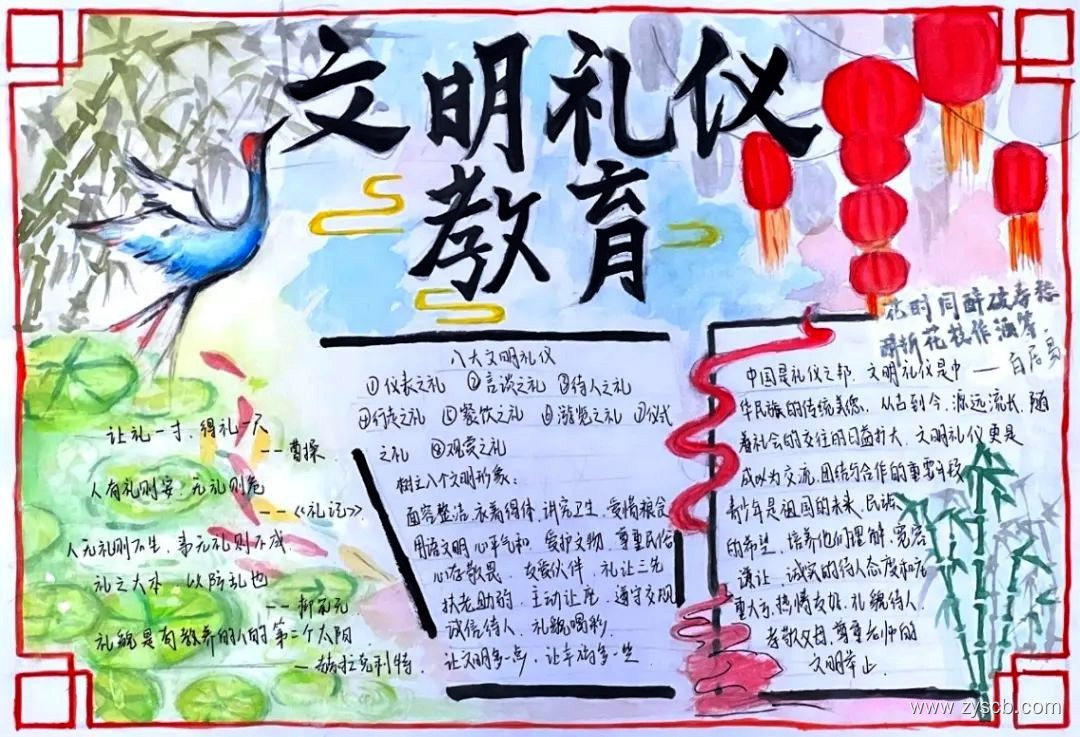 文明礼仪
教育
花时同醉破春愁
醉折花枝作酒筹
—白居易
让礼一寸，得礼一尺
--曹操
人有礼则安，无礼则危
--《礼记》
人无礼则不生，事无礼则不成
礼之大本，以防乱也
--柳宗元
礼貌是有教养的人的第二个太阳
—赫拉克利特
八大文明礼仪
①仪表之礼 ②言谈之礼 ③待人之礼
④行走之礼 ⑤餐饮之礼 ⑥游览之礼 ⑦仪式
之礼 ⑧观赏之礼
树立八个文明形象：
面容整洁，衣着得体，讲究卫生，爱惜粮食
用语文明 心平气和，爱护文物，尊重民俗
心存敬畏，友爱伙伴，礼让三先
扶老助弱，主动让座，遵守交规
诚信待人，礼貌唱称
让文明多一点，让幸福多一些
中国是礼仪之邦，文明礼仪是中
华民族的传统美德，从古到今，源远流长，随
着社会的交往的日益扩大，文明礼仪更是
成以为交流，团结与合作的重要手段
青少年是祖国的未来，民族
的希望，培养他们理解，宽容
谦让，诚实的待人态度和庄
重大方，热情友好，礼貌待人，
孝敬父母，尊重老师的
文明举止
www.zyscb.com